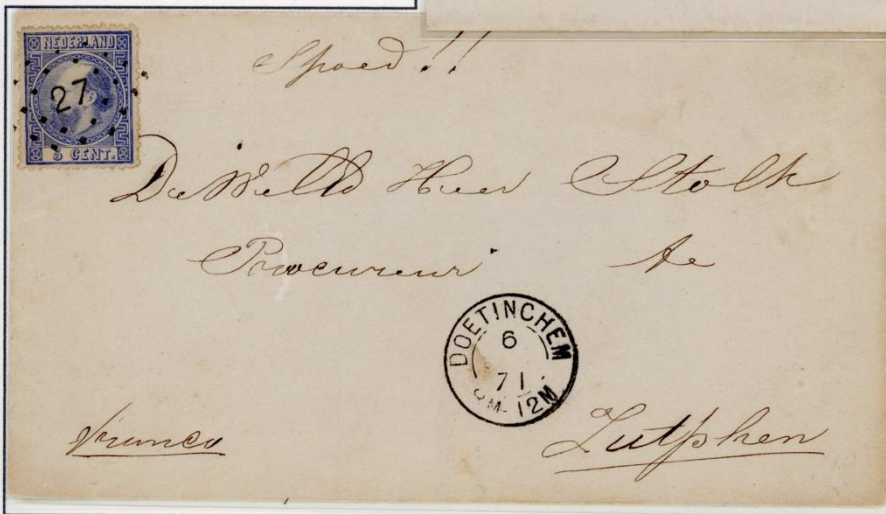 NEDERLAND
27
5 CENT.
Spoed!!
De WelEd Heer Stolk
Procureur te
DOETINCHEM
6
71
8M-12M
franco
Zutphen